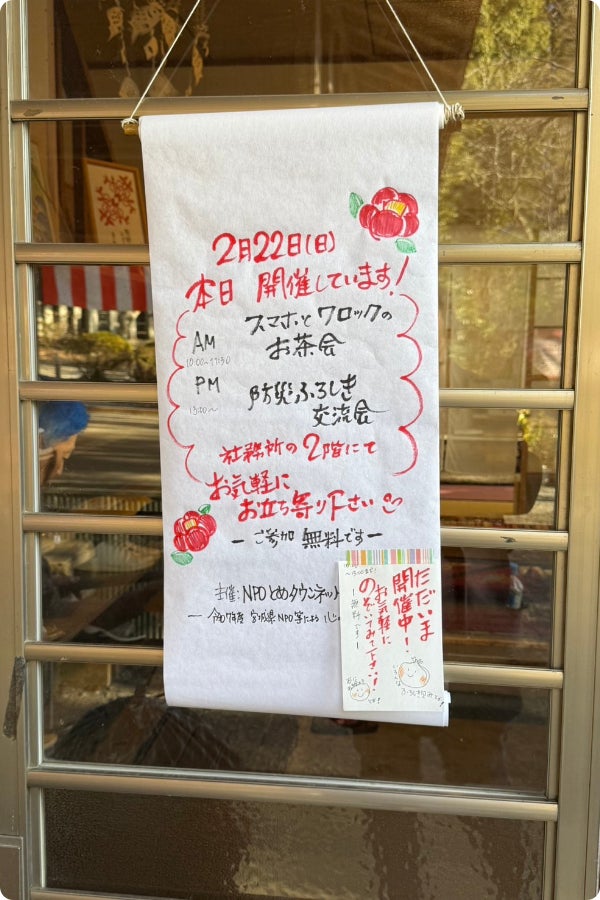 2月22日(日)
本日 開催しています!
スマホとワロックの
お茶会
AM
10:00~11:30
PM
13:00~
防災ふろしき
交流会
社務所の2階にて
お気軽に
お立ち寄り下さい
ーご参加 無料ですー
主催:NPOとめタウンネット
ー令和7年度 宮城県NPO等による 心の
ただいま
開催中!
お気軽に
のぞいてみて下さい!
ー無料ですー